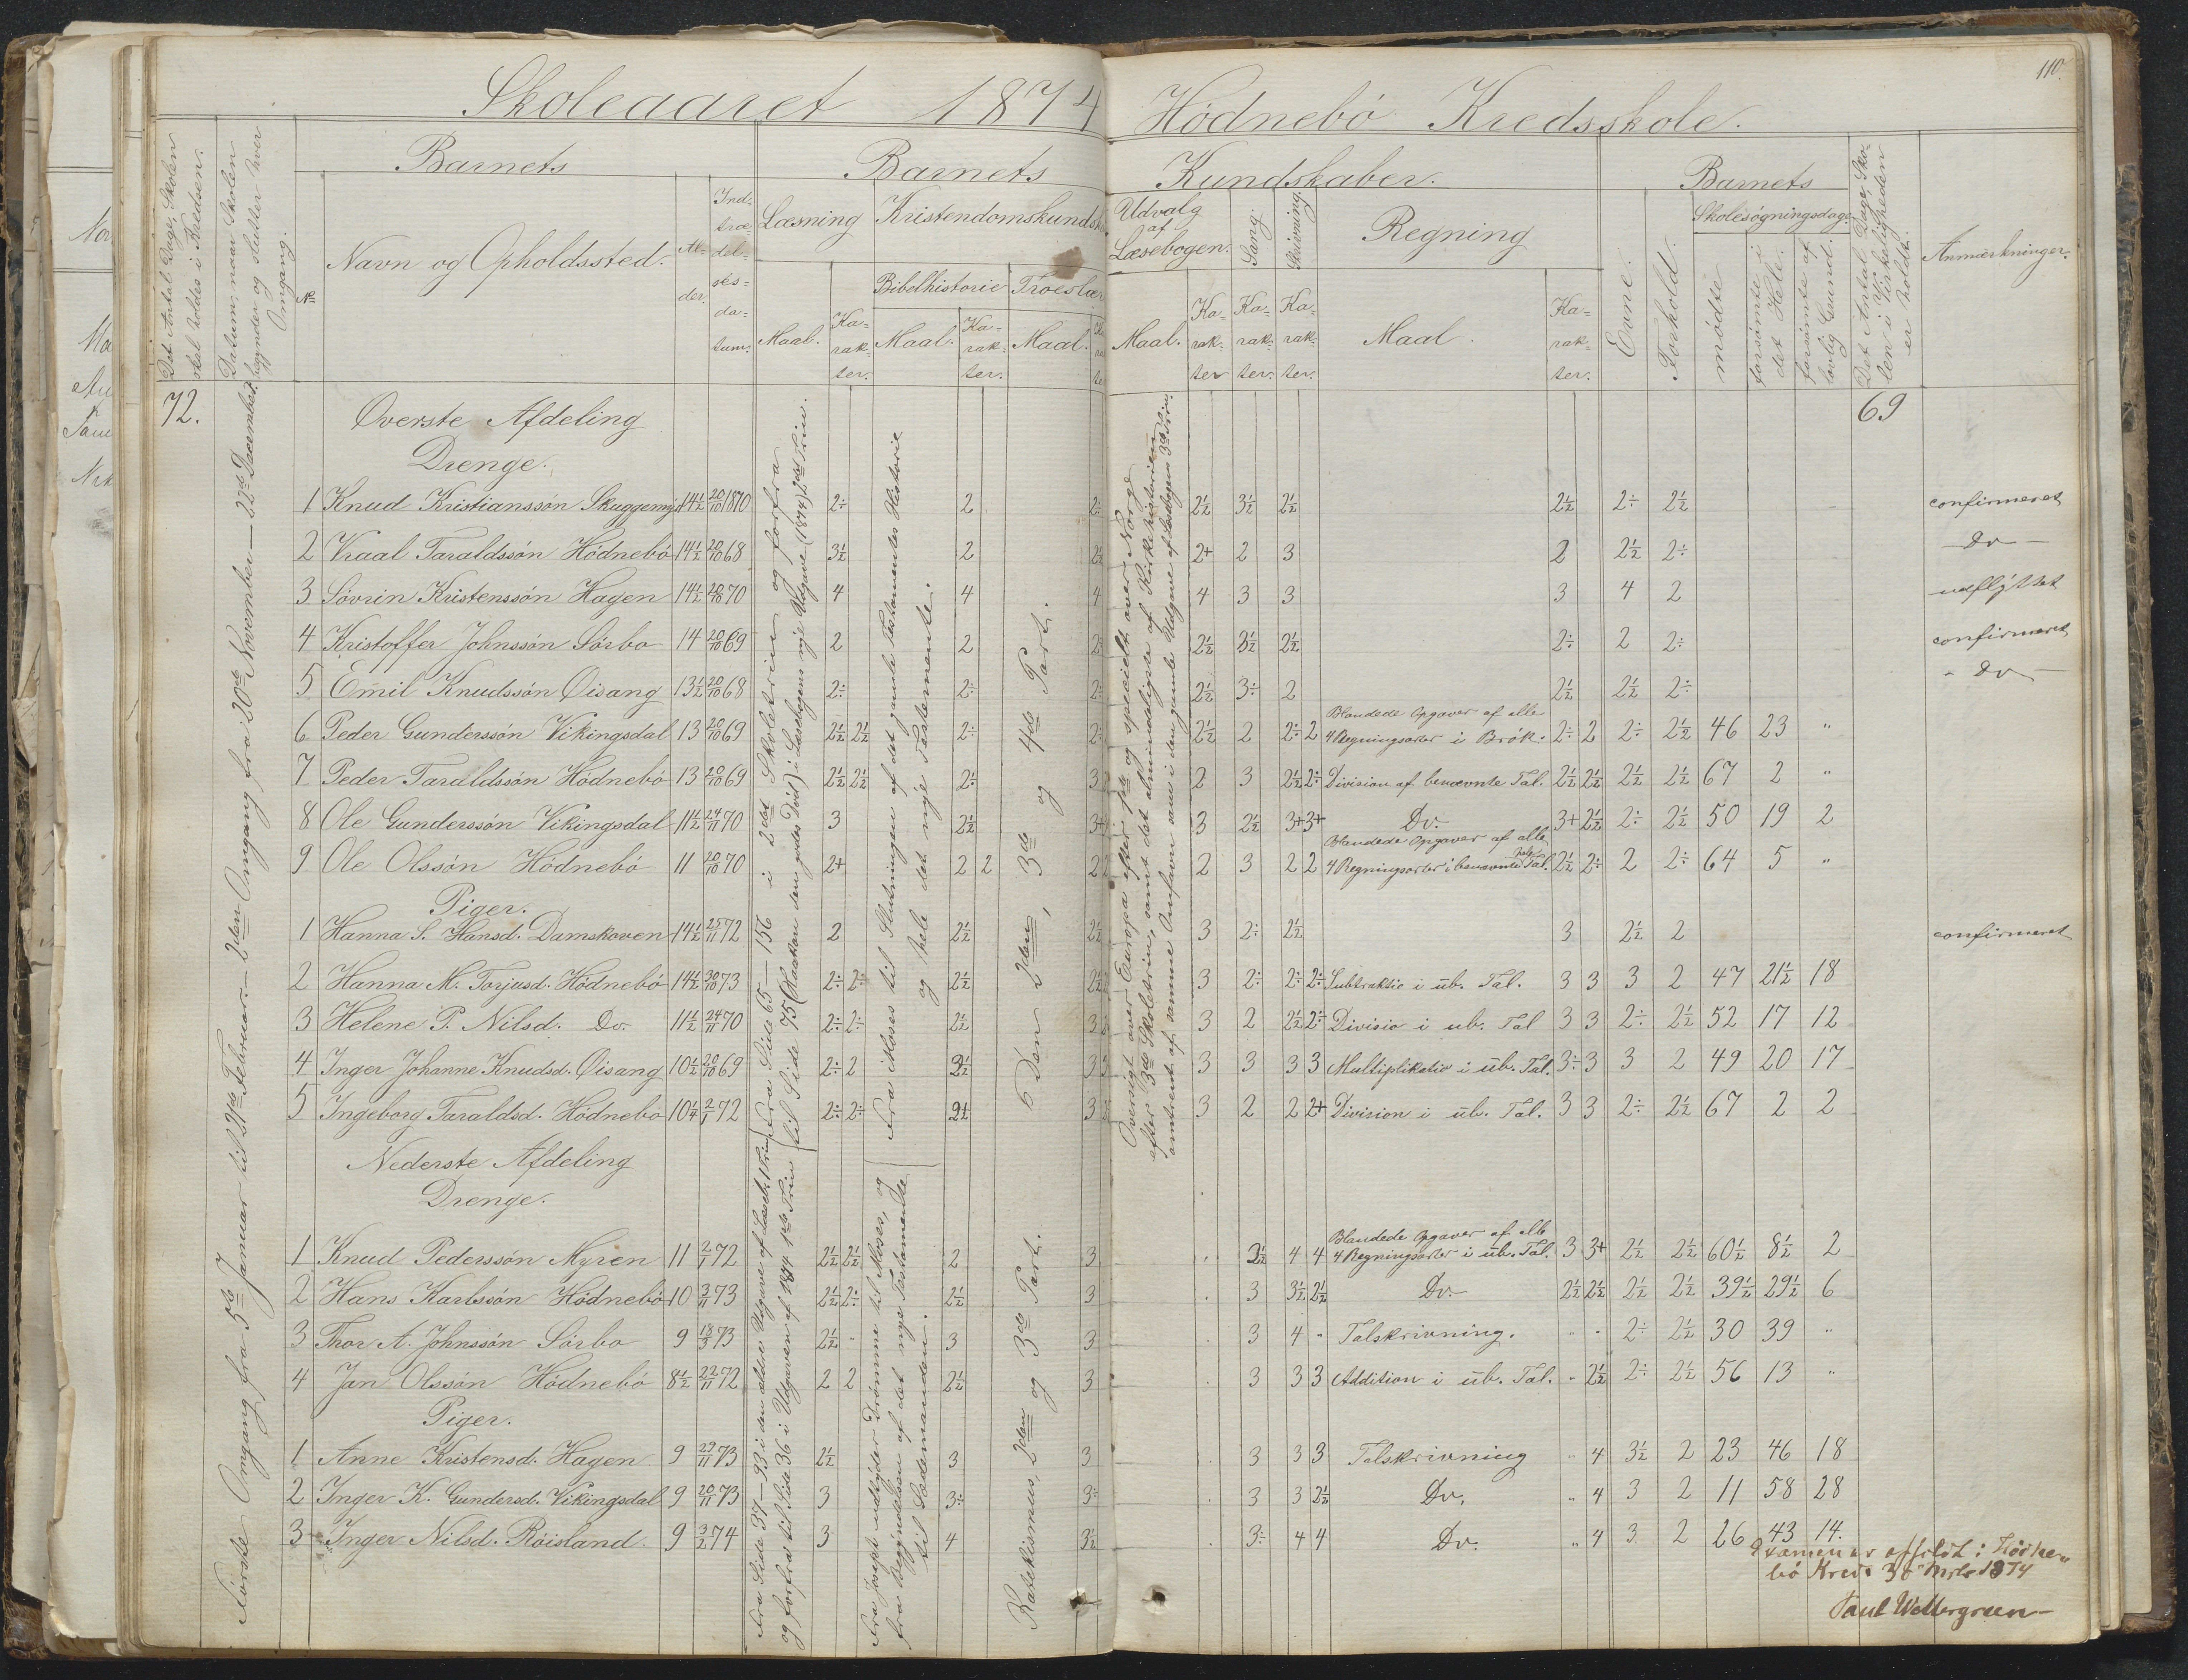 110.
Skoleaaret 1874 Hödnebö Kredsskole.
Det Antal Dage, Skolen skal holdes i Kredsen.
Datum, naar Skolen begynder og slutter hver Omgang.
Barnets
No
Navn og Opholdssted.
Alder.
Indtrædelsesdatum.
Barnets Kundskaber.
Læsning
Maal.
Karakter.
Kristendomskundsk
Bibelhistorie
Maal.
Karakter.
Troeslær
Maal.
Udvalg af Læsebogen.
Maal.
Karakter
Sang.
Karakter.
Skrivning.
Karakter.
Regning
Maal.
Karakter.
Barnets
Evne.
Forhold.
Skolesögningsdage.
mödte
forsömte i det Hele.
forsömte af lovlig Grund.
Det Antal Dage, Skolen i Virkeligheden er holdt.
Anmærkninger.
72.
69
Første Omgang fra 5te Januar til 21de Februar. — 2den Omgang fra 20de November — 22de December.
Overste Afdeling
Drenge.
1 Knud Kristianssön Skuggemyr 14½ 20/10 1870 2÷ 2 2÷ 2½ 3½ 2½ 2½ 2÷ 2½ confirmeret
2 Vraal Taraldssön Hödnebö 14½ 20/10 68 3½ 2 2½ 2+ 2 3 2 2½ 2÷ — Do —
3 Sövrin Kristenssön Hagen 14½ 20/10 70 4 4 4 4 3 3 3 4 2 udflyttet
4 Kristoffer Johnssön Sörbo 14 20/10 69 2 2 2÷ 2½ 3½ 2½ 2÷ 2 2÷ confirmeret
5 Emil Knudssön Öisang 13½ 20/10 68 2÷ 2÷ 2÷ 2½ 3÷ 2 2½ 2½ 2÷ - Do —
6 Peder Gunderssön Vikingsdal 13 20/10 69 2½ 2½ 2÷ 2÷ 2½ 2 2÷ 2 Blandede Opgaver af alle 4 Regningsarter i Brök. 2÷ 2 2÷ 2½ 46 23 "
7 Peder Taraldssön Hödnebö 13 20/10 69 2½ 2½ 2÷ 3 2 3 2½ 2÷ Division af benævnte Tal. 2½ 2½ 2½ 2½ 67 2 "
8 Ole Gunderssön Vikingsdal 11½ 24/11 70 3 2½ 3+ 3 2½ 3+ 3+ Do. 3+ 2½ 2÷ 2½ 50 19 2
9 Ole Olssön Hödnebö 11 20/10 70 2+ 2 2 2 2 3 2 2 Blandede Opgaver af alle 4 Regningsarter i benævnte hele Tal. 2½ 2÷ 2 2÷ 64 5 "
Piger.
1 Hanna S. Hansd. Damskoven 14½ 25/11 72 2 2½ 2½ 3 2÷ 2½ 3 2½ 2 confirmeret
2 Hanna M. Torjusd. Hödnebö 14½ 30/10 73 2÷ 2÷ 2½ 2½ 3 2÷ 2÷ 2÷ Subtraktio i ub. Tal. 3 3 3 2 47 21½ 18
3 Helene P. Nilsd. Do. 11½ 24/11 70 2÷ 2÷ 2½ 3 3 2 2½ 2÷ Divisio i ub. Tal 3 3 2÷ 2½ 52 17 12
4 Inger Johanne Knudsd. Öisang 10½ 20/10 69 2÷ 2 2½ 3 3 3 3 3 Multiplikatio i ub. Tal. 3÷ 3 3 2 49 20 17
5 Ingeborg Taraldsd. Hödnebö 10¼ 2/1 72 2÷ 2÷ 2½ 3 3 2 2 2+ Division i ub. Tal. 3 3 2÷ 2½ 67 2 2
Fra Side 65 — 156 i 2det Skoletrin og forfra
til Side 75 (Haakon den godes Död) i Læsebogens nye Udgave (1874) 2det Trin.
Fra Moses til Slutningen af det gamle Testamentes Historie
og hele det nye Testamente.
Den 2den, 3de og 4de Part.
Oversigt over Europa efter og specielt over Norge
efter 3de Skoletrin, samt det almindeligste af Kirkehistorien
omtrent af samme Omfavn som i den gamle Udgave af Læsebogens 3de Trin.
Nederste Afdeling
Drenge.
1 Knud Pederssön Myren 11 2/1 72 2½ 2½ 2 3 3½ 4 4 Blandede Opgaver af alle 4 Regningsarter i ub. Tal. 3 3+ 2½ 2½ 60½ 8½ 2
2 Hans Karlssön Hödnebö 10 3/11 73 2½ 2÷ 2½ 3 3 3½ 2½ Do. 2½ 2½ 2½ 2½ 39½ 29½ 6
3 Thor A. Johnssön Sörbo 9 18/3 73 2½ - 3 3 3 4 - Talskrivning. " " 2÷ 2½ 30 39 "
4 Jan Olssön Hödnebö 8½ 22/11 72 2 2 2½ 3 3 3 3 Addition i ub. Tal. " 2½ 2÷ 2½ 56 13 "
Piger.
1 Anne Kristensd. Hagen 9 29/11 73 2½ 3 3 3 3 3 Talskrivning " 4 3½ 2 23 46 18
2 Inger K. Gundersd. Vikingsdal 9 20/11 73 3 3÷ 3÷ 3 3 2½ Do. " 4 3 2 11 58 28
3 Inger Nilsd. Röisland. 9 3/2 74 3 4 3½ 3÷ 4 4 Do. " 4 3 2 26 43 14.
Fra Side 37 — 93 i den ældre Udgave af Læseb. 1 Trin
og forfra til Side 36 i Udgaven af 1874 1ste Trin
Fra Josept udtyder Drömme til Moses, og
fra Begyndelsen af det nye Testamente
til Sædemanden.
Katekismus, 2den og 3de Part.
Examen er afholdt i Hödne-
bö Kreds 30 1874
Paul Wettergreen